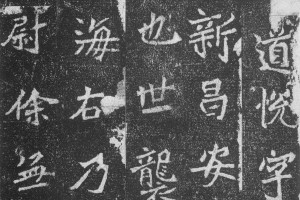 道悅字
新昌安
也世襲
海右乃
尉徐孟